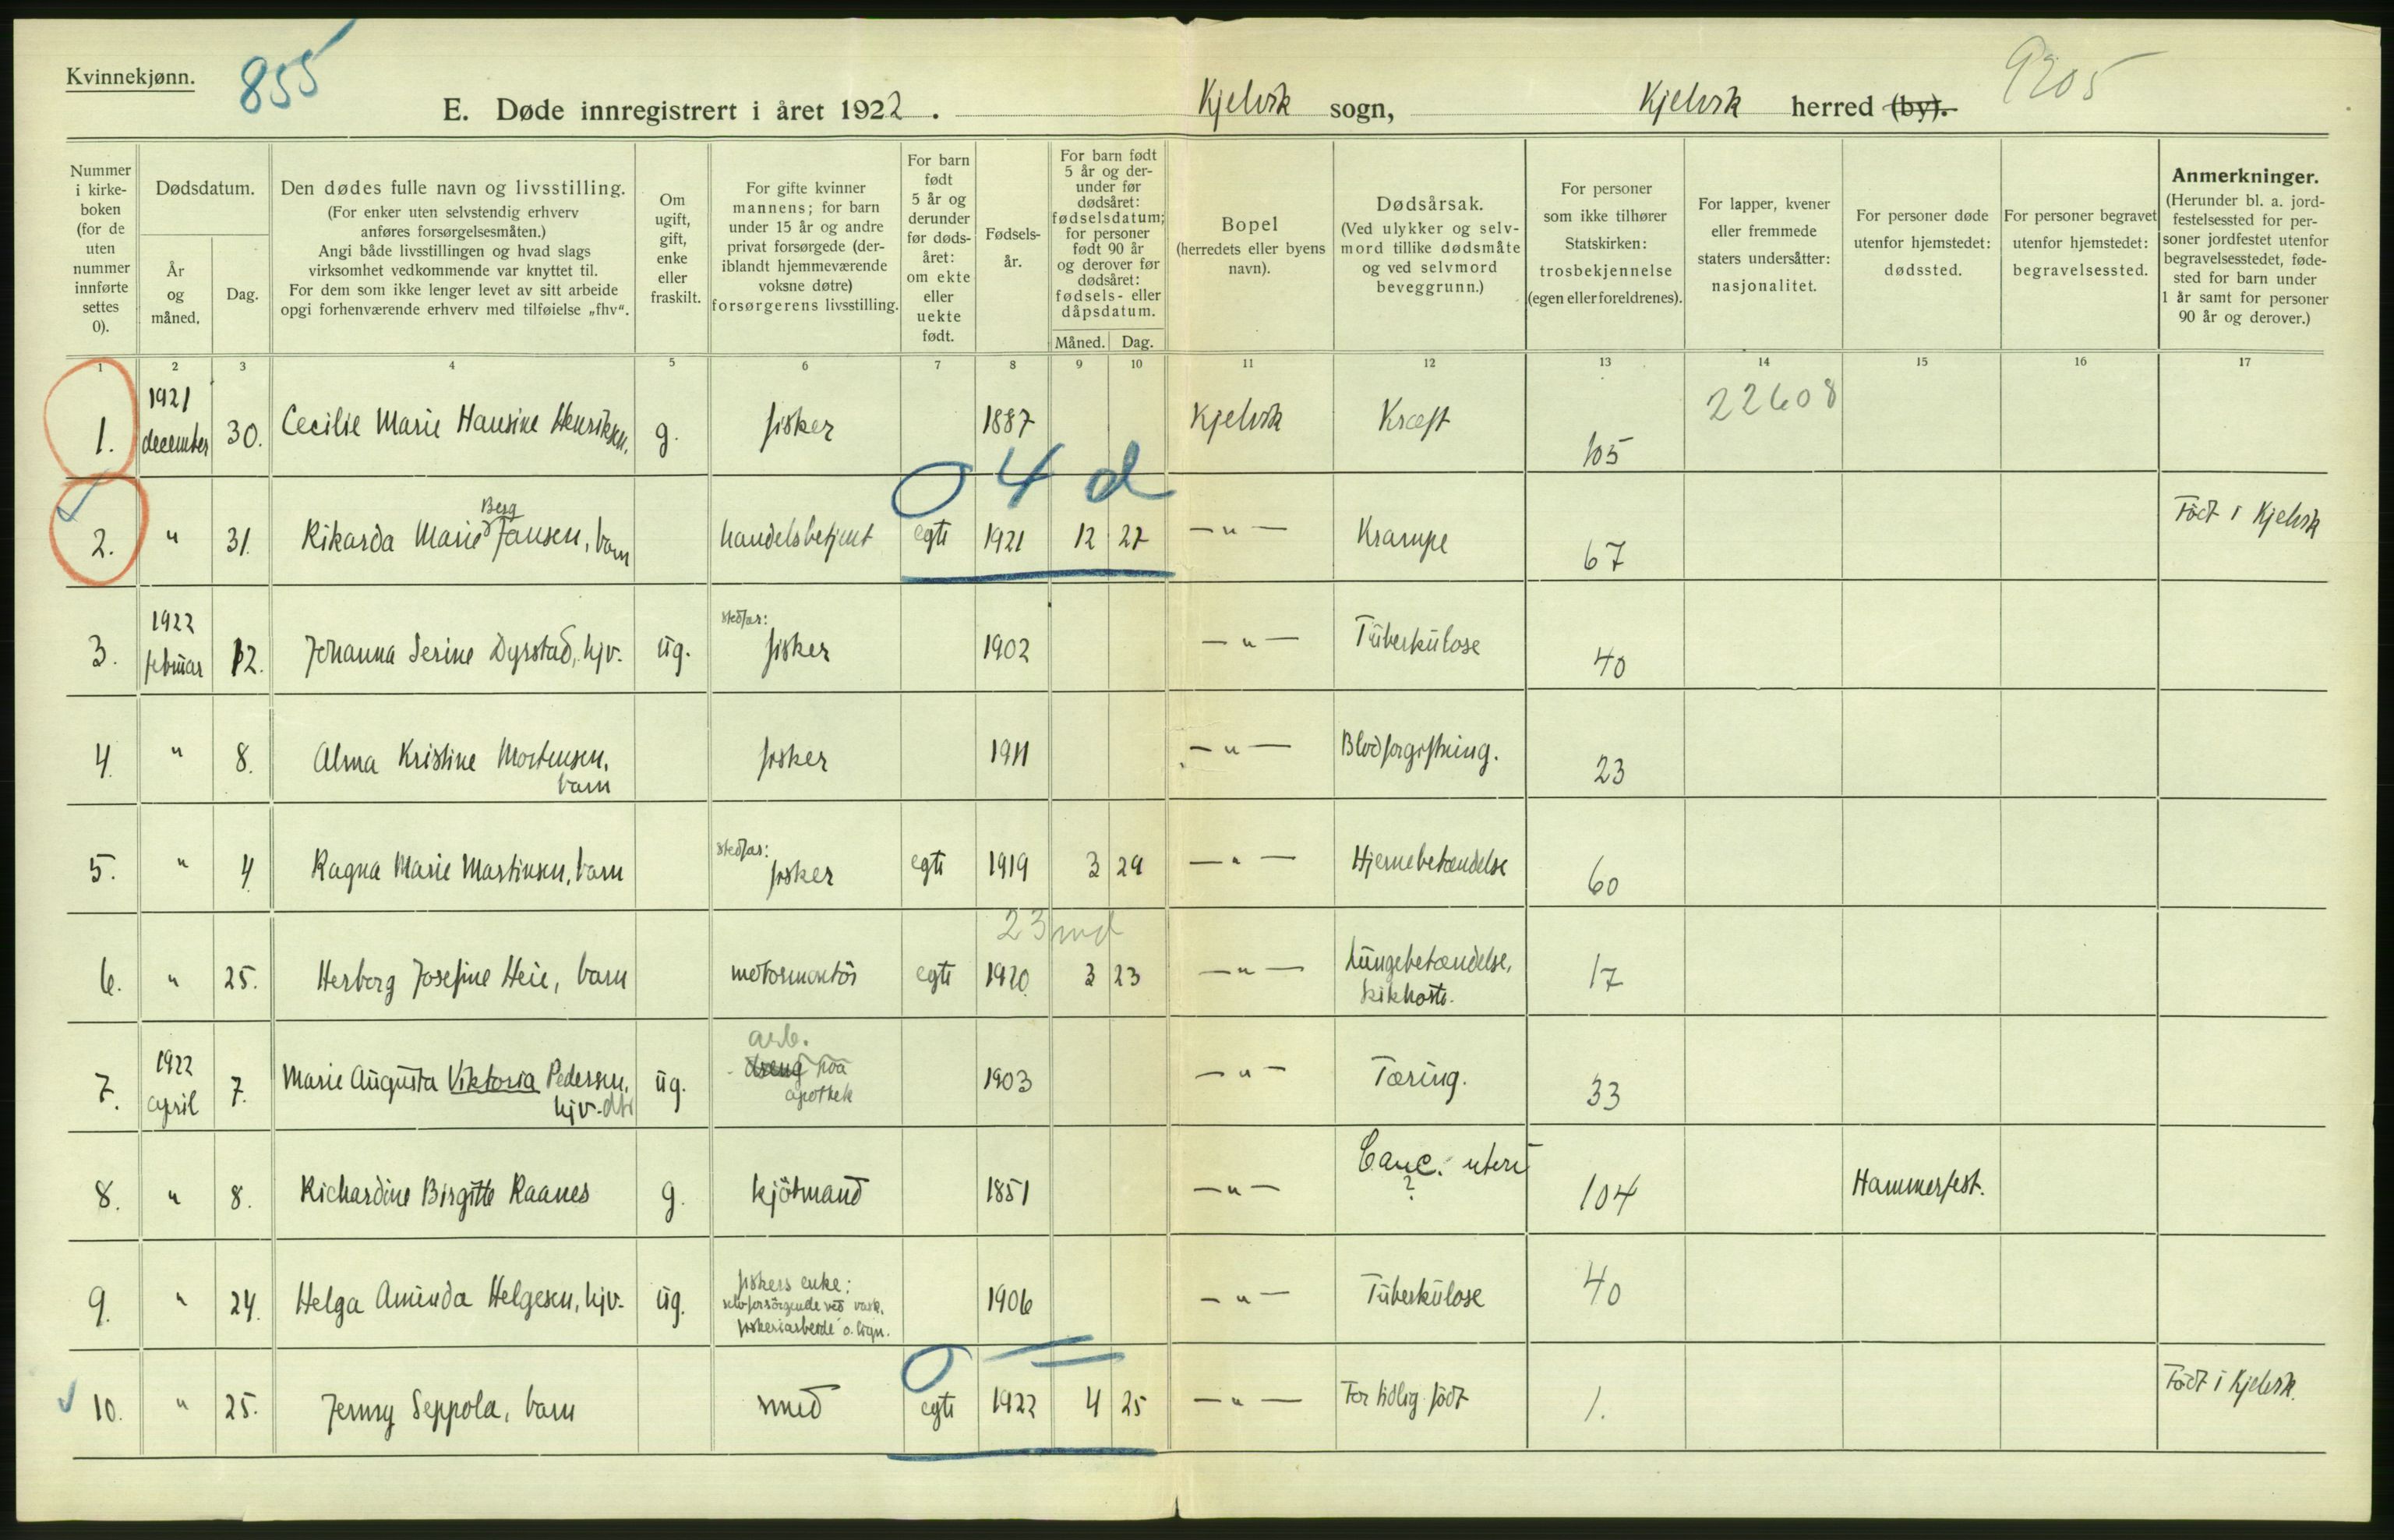 Kvinnekjønn.
855
9205
E. Døde innregistrert i året 1922. Kjelvik sogn, Kjelvik herred (by).
Nummer i kirkeboken (for de uten nummer innførte settes 0).
Dødsdatum.
År og måned.
Dag.
Den dødes fulle navn og livsstilling.
(For enker uten selvstendig erhverv anføres forsørgelsesmåten.)
Angi både livsstillingen og hvad slags virksomhet vedkommende var knyttet til.
For dem som ikke lenger levet av sitt arbeide opgi forhenværende erhverv med tilføielse „fhv“.
Om ugift, gift, enke eller fraskilt.
For gifte kvinner mannens; for barn under 15 år og andre privat forsørgede (deriblandt hjemmeværende voksne døtre) forsørgerens livsstilling.
For barn født 5 år og derunder før dødsåret: om ekte eller uekte født.
Fødselsår.
For barn født 5 år og derunder før dødsåret: fødselsdatum; for personer født 90 år og derover før dødsåret: fødsels- eller dåpsdatum.
Måned. Dag.
Bopel
(herredets eller byens navn).
Dødsårsak.
(Ved ulykker og selvmord tillike dødsmåte og ved selvmord beveggrunn.)
For personer som ikke tilhører Statskirken: trosbekjennelse (egen eller foreldrenes).
For lapper, kvener eller fremmede staters undersåtter: nasjonalitet.
For personer døde utenfor hjemstedet: dødssted.
For personer begravet utenfor hjemstedet: begravelsessted.
Anmerkninger.
(Herunder bl. a. jordfestelsessted for personer jordfestet utenfor begravelsesstedet, fødested for barn under 1 år samt for personer 90 år og derover.)
1 2 3 4 5 6 7 8 9 10 11 12 13 14 15 16 17
1. 1921 december 30. Cecilie Marie Hansine Henriksen, g. fisker 1887 Kjelvik Kræft 105 22608
0 4 d
2. " 31. Rikarda Marie Berg Jansen, barn handelsbetjent egte 1921 12 27 — " — Krampe 67 Født i Kjelvik
3. 1922 februar 12. Johanna Serine Dyrstad, hjv. ug. stedfar: fisker 1902 — " — Tuberkulose 40
4. " 8. Alma Kristine Mortensen, barn fisker 1911 — " — Blodforgiftning. 23
5. " 4. Ragna Marie Martinsen, barn stedfar: fisker egte 1919 3 29 — " — Hjernebetændelse 60
23 md
6. " 25. Herborg Josefine Heie, barn motormontör egte 1920 3 23 — " — Lungebetændelse, kikhoste. 17
7. 1922 april 7. Marie Augusta Viktoria Pedersen, hjv. dtr ug. arb. dreng paa apothek 1903 — " — Tæring. 33
8. " 8. Richardine Birgitte Raanes g. kjötmand 1851 — " — Canc. uteri ? 104 Hammerfest.
9. " 24. Helga Aminda Helgesen, hjv. ug. fiskers enke: selvforsörgende ved vask, fiskeriarbeide o. lign. 1906 — " — Tuberkulose 40
10. " 25. Jenny Seppola, barn smed egte 1922 4 25 — " — For tidlig født 1. Født i Kjelvik.